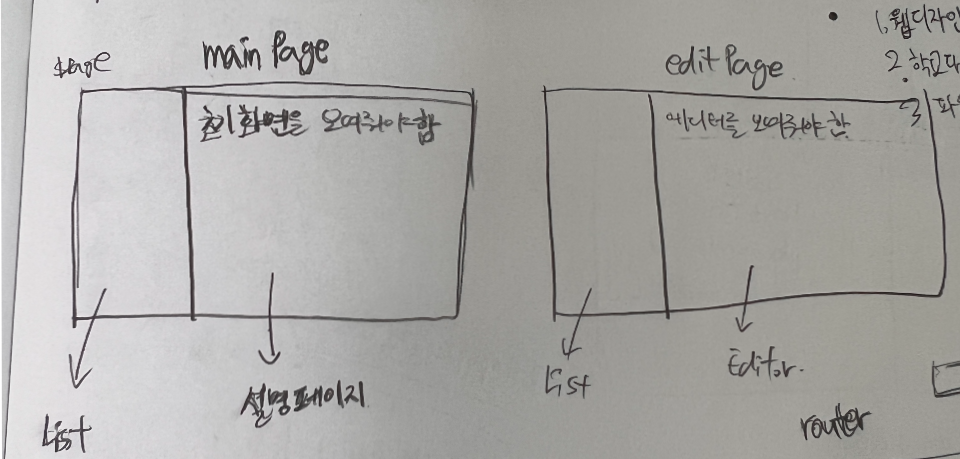 page
main Page
초기화면을 보여줘야함
List
설명페이지
edit Page
에디터를 보여줘야 함
List
Editor.
router
1. 웹디자인
2. 학교
3